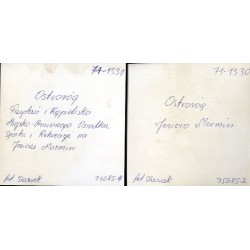 71-1331
Ostroróg
Przystań i Kąpielisko
Miejsko-Gminnego Ośrodka
Sportu i Rekreacji na
Jeziorze Mormin
fot. Stasiak
35085-4
71-1330
Ostroróg
Jezioro Mormin
fot. Stasiak
35085-2